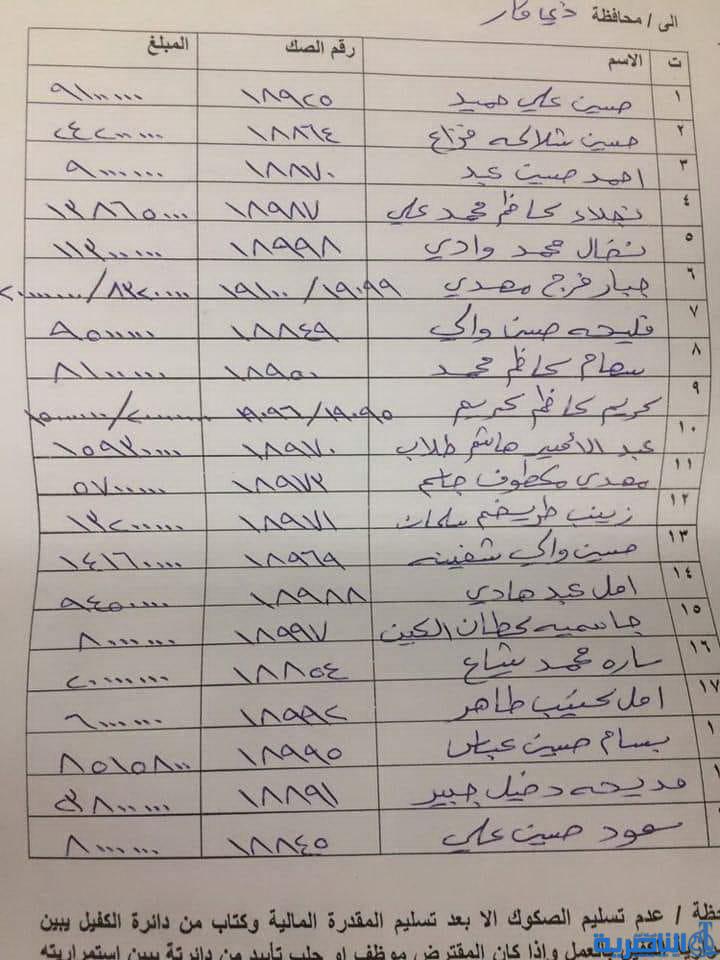 الى / محافظة ذي قار
ت الاسم رقم الصك المبلغ
١ حسين علي حميد ١٨٩٢٥ ٩١٠٠٠٠٠
٢ حسين شلاكه هزاع ١٨٨٦٤
٣ احمد حسين عبد ١٨٨٧٠ ٩٠٠٠٠٠٠
٤ نجلاء كاظم محمد علي ١٨٩٨٧ ١٣٨٦٥٠٠٠
٥ نضال محمد وادي ١٨٩٩٨ ١١٣٠٠٠٠٠
٦ جبار فرج مهدي ١٩٠٩٩ / ١٩١٠٠
٧ فليحه حسن والي ١٨٨٤٩ ٩٥٠٠٠٠٠
٨ سهام كاظم محمد ١٨٩٥٠ ٨١٠٠٠٠٠
٩ كريم كاظم كريم ١٩٠٩٥ / ١٩٠٩٦
١٠ عبد الامير هاشم طلاب ١٨٩٧٠ ١٠٥٩٣٠٠٠
١١ مهدي مكطوف جاسم ١٨٩٧٣ ٥٧٠٠٠٠٠
١٢ زينب سلمان ١٨٩٧١ ١٣٢٠٠٠٠٠
١٣ حسين والي شفينه ١٨٩٦٩ ١٤١٦٠٠٠٠
١٤ امل عبد هادي ١٨٩٨٨ ٩٤٥٠٠٠٠
١٥ جاسميه ١٨٩٩٧ ٨٠٠٠٠٠٠
١٦ ساره محمد شياع ١٨٨٥٤ ٢٠٠٠٠٠٠٠
١٧ امل طاهر ١٨٩٩٢ ٦٠٠٠٠٠٠
بسام حسين عباس ١٨٩٩٥ ٨٥١٥٨٠٠
مديحه دخيل جبير ١٨٨٩١ ٣٨٠٠٠٠٠
سعود حسين علي ١٨٨٤٥ ٨٠٠٠٠٠٠
/ عدم تسليم الصكوك الا بعد تسليم المقدرة المالية وكتاب من دائرة الكفيل يبين
بالعمل واذا كان المقترض موظف او جلب تأييد من دائرته يبين استمراريته
الناصرية